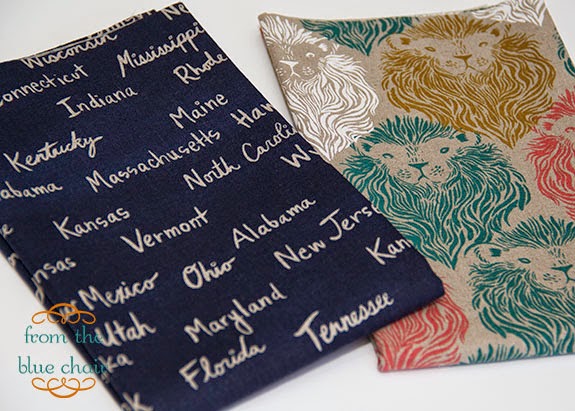 Wisconsin
Connecticut Mississippi
Indiana Rhode
Maine
Kentucky
Alabama Massachusetts
North Carolina
Kansas
Vermont Alabama
Kansas Ohio New Jersey
Mexico
Utah Maryland Kan
Florida Tennessee
from the
blue chair